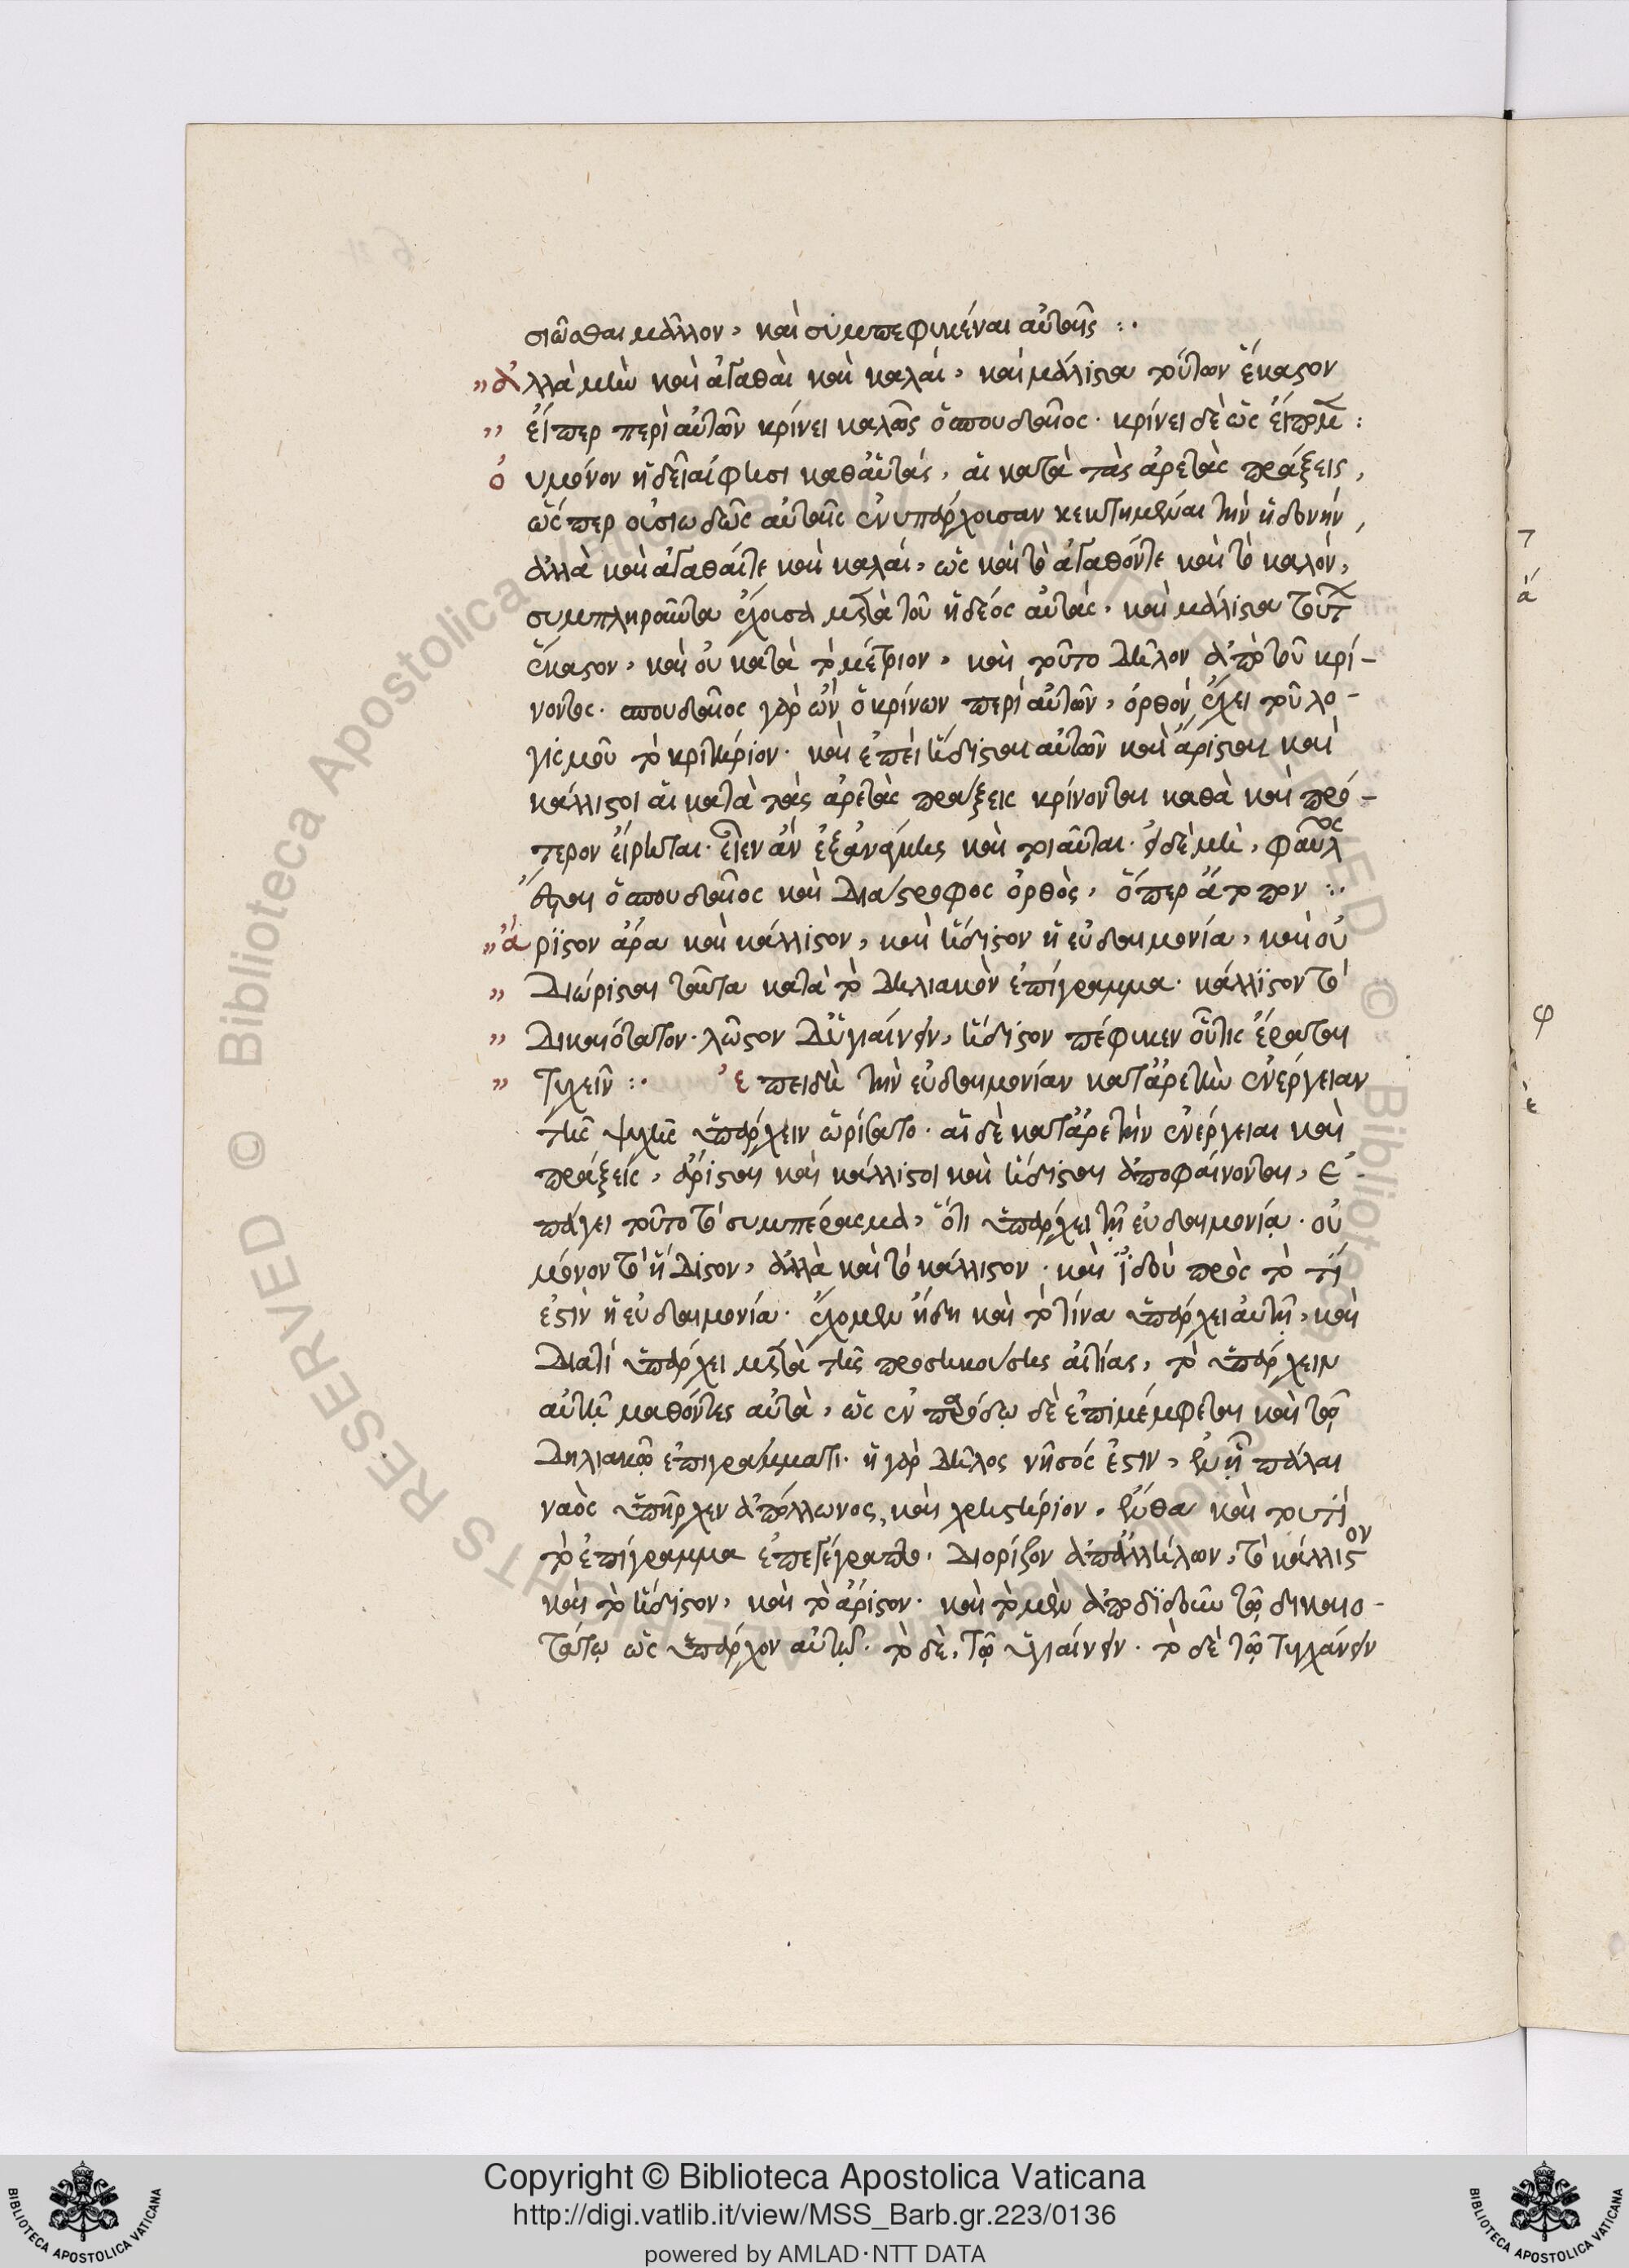 σιῶσθαι μᾶλλον, καὶ συμπεφυκέναι αὐταῖς :.
" ἀλλὰ μὴν καὶ ἀγαθαὶ καὶ καλαί, καὶ μάλιστα τούτων ἕκαστον
" εἴπερ περὶ αὐτῶν κρίνει καλῶς ὁ σπουδαῖος· κρίνει δὲ ὡς εἴπομ :
ὀυ μόνον ἡδεῖαί φησι καθ' αὑτάς, αἱ κατὰ τὰς ἀρετὰς πράξεις,
ὥσπερ οὐσιωδῶς αὐταῖς ἐνυπάρχουσαν κεκτημέναι τὴν ἡδονήν,
ἀλλὰ καὶ ἀγαθαί τε καὶ καλαί, ὡς καὶ τὸ ἀγαθόν τε καὶ τὸ καλόν,
συμπληροῦντα ἔχουσαι μετὰ τοῦ ἡδέος αὐτάς, καὶ μάλιστα τούτ
ἕκαστον, καὶ οὐ κατὰ τὸ μέτριον, καὶ τοῦτο δῆλον ἀπὸ τοῦ κρί-
νοντος. σπουδαῖος γὰρ ὢν ὁ κρίνων περὶ αὐτῶν, ὀρθὸν ἔχει τοῦ λο-
γισμοῦ τὸ κριτήριον. καὶ ἐπεὶ ἥδισται αὐτῶν καὶ ἄρισται καὶ
κάλλισται αἱ κατὰ τὰς ἀρετὰς πράξεις κρίνονται καθὰ καὶ πρό-
τερον εἴρηται. εἶεν ἂν ἐξ ἀνάγκης καὶ τοιαῦται. εἰ δὲ μὴ, φαῦλος
ἔσται ὁ σπουδαῖος καὶ διάστροφος ὀρθὸς, ὅπερ ἄτοπον :.
" ἄριστον ἄρα καὶ κάλλιστον, καὶ ἥδιστον ἡ εὐδαιμονία, καὶ οὐ
" διώρισται ταῦτα κατὰ τὸ δηλιακὸν ἐπίγραμμα. κάλλιστον τὸ
" δικαιότατον. λῷστον δ' ὑγιαίνειν, ἥδιστον πέφυκεν οὗ τις ἔραται
" τυχεῖν :. ἐπειδὴ τὴν εὐδαιμονίαν κατ' ἀρετὴν ἐνέργειαν
τῆς ψυχῆς ὑπάρχειν ὡρίσατο. αἱ δὲ κατ' ἀρετὴν ἐνέργειαι καὶ
πράξεις, ἄρισται καὶ κάλλισται καὶ ἥδισται ἀποφαίνονται, ἐ-
πάγει τοῦτο τὸ συμπέρασμα, ὅτι ὑπάρχει τῇ εὐδαιμονίᾳ. οὐ
μόνον τὸ ἥδιστον, ἀλλὰ καὶ τὸ κάλλιστον. καὶ ἰδοὺ πρὸς τὸ τί
ἐστιν ἡ εὐδαιμονία. ἔχομεν ἤδη καὶ τὸ τίνα ὑπάρχει αὐτῇ, καὶ
διατί ὑπάρχει μετὰ τῆς προσηκούσης αἰτίας, τὸ ὑπάρχειν
αὐτῇ μαθόντες αὐτὰ, ὡς ἐν παρόδῳ δὲ ἐπιμέμφεται καὶ τῷ
Δηλιακῷ ἐπιγράμματι. ἡ γὰρ Δῆλος νῆσός ἐστιν, ἐν ᾗ πάλαι
ναὸς ὑπῆρχεν ἀπόλλωνος, καὶ χρηστήριον, ἔνθα καὶ τουτὶ
τὸ ἐπίγραμμα ἐπεγέγραπτο. διορίζον ἀπ' ἀλλήλων, τὸ κάλλιστον
καὶ τὸ ἥδιστον, καὶ τὸ ἄριστον. καὶ τὸ μὲν ἀποδιδοῦν τῷ δικαιο-
τάτῳ ὡς ὑπάρχον αὐτῷ. τὸ δὲ, τῷ ὑγιαίνειν. τὸ δὲ τῷ τυγχάνειν
Copyright © Biblioteca Apostolica Vaticana
http://digi.vatlib.it/view/MSS_Barb.gr.223/0136
powered by AMLAD·NTT DATA
BIBLIOTECA APOSTOLICA VATICANA
BIBLIOTECA APOSTOLICA VATICANA